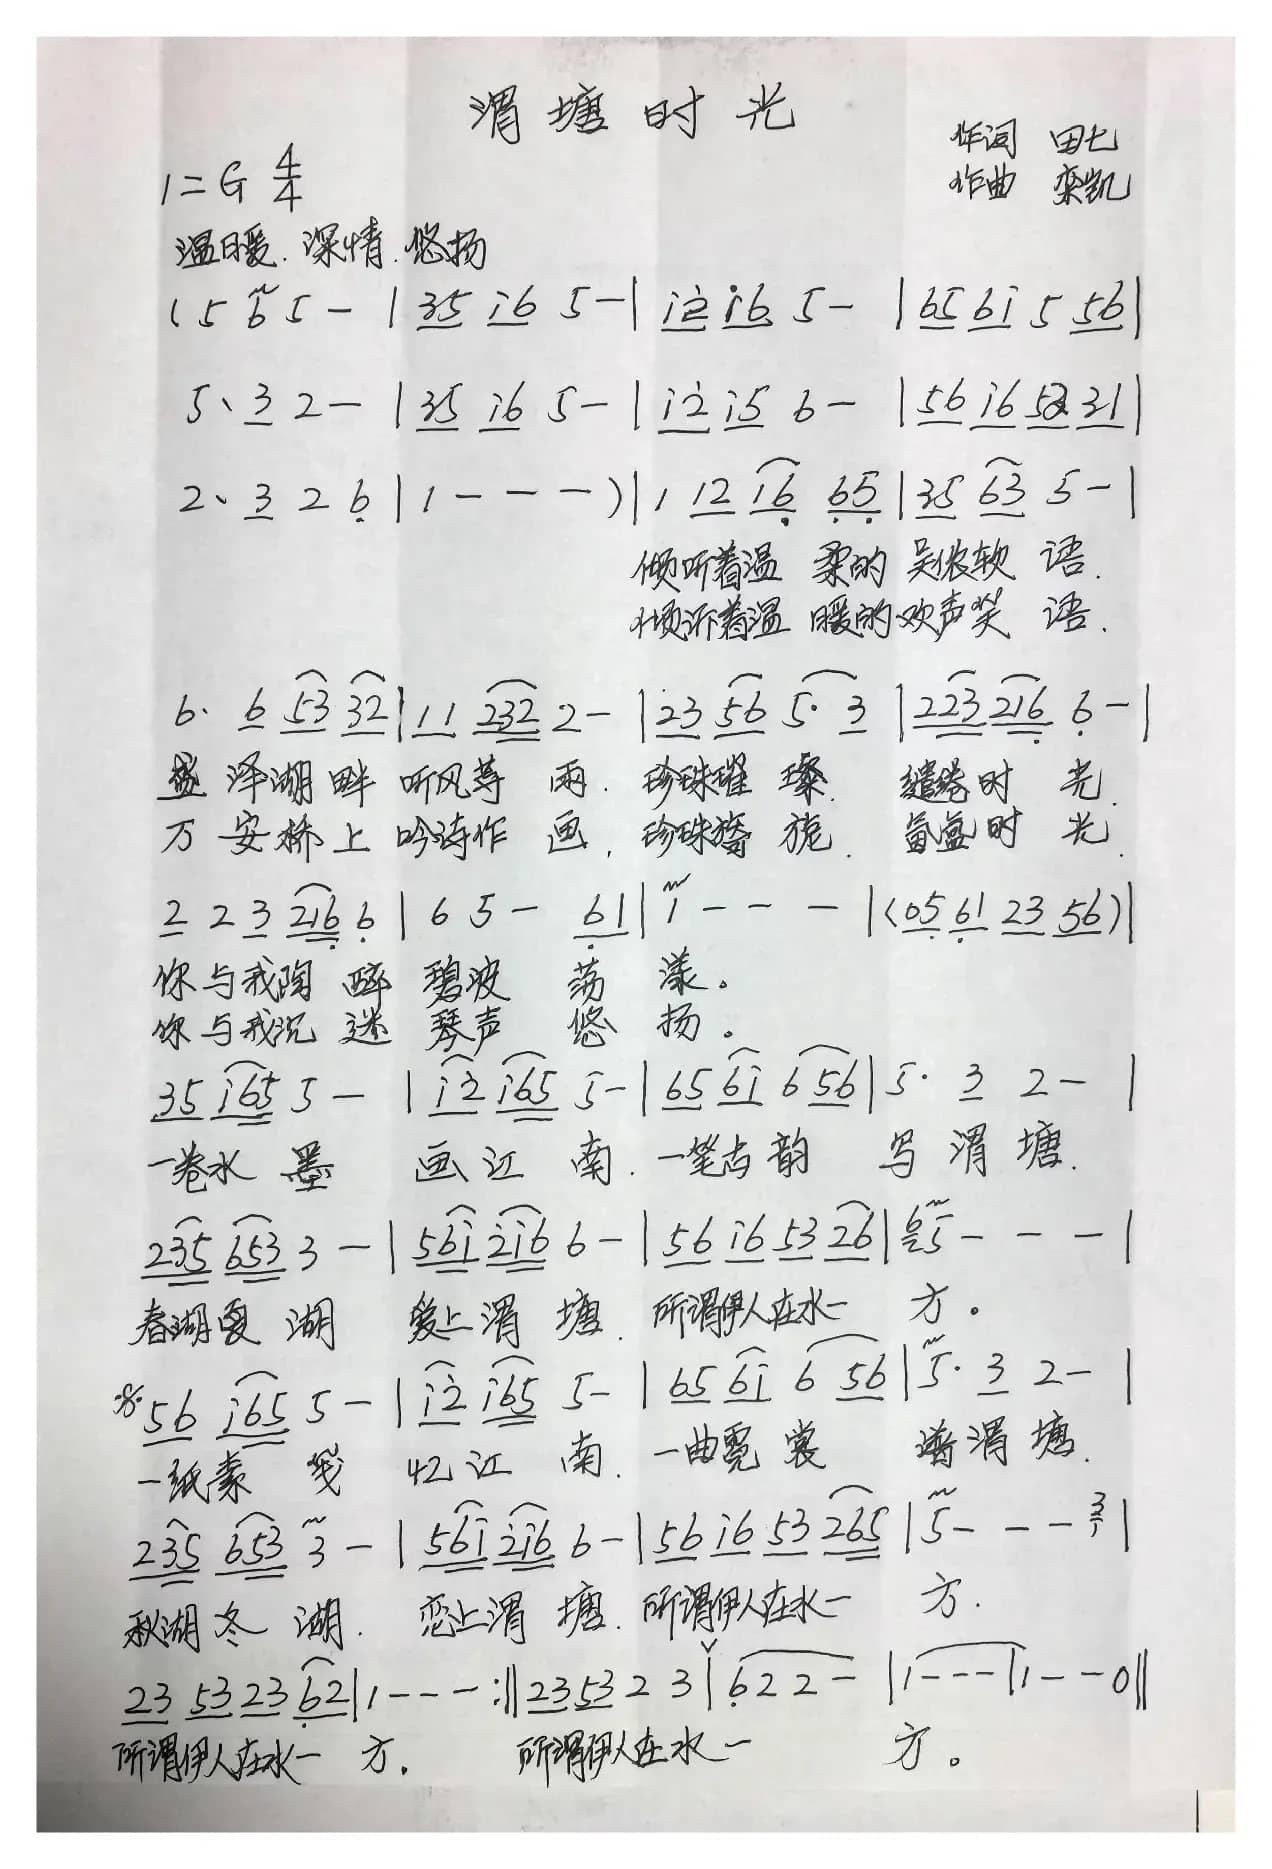 渭塘时光
作词 田七
1=G 4/4
作曲 栾凯
温暖.深情.悠扬
(5 6 5 - | 35 i6 5 - | i2̇ i6 5 - | 65 6i 5 56 |
5、3 2 - | 35 i6 5 - | i2̇ i5 6 - | 56 i6 53 31 |
2、3 2 6̣ | 1 - - - ) | 1 12 16̣ 6̣5̣ | 35 63 5 - |
倾听着温 柔的 吴侬软 语.
倾诉着温 暖的欢声笑 语.
6· 6 53 32 | 11 232 2 - | 23 56 5· 3 | 223 216̣ 6̣ - |
盛 泽湖畔 听风荨 雨. 珍珠璀 璨. 缱绻时 光.
万 安桥上 吟诗作 画, 珍珠旖 旎. 氤氲时 光.
2 2 3 216̣ 6̣ | 6 5 - 6̣1 | 1 - - - | (05̣ 6̣1 23 56) |
你与我陶 醉 碧波 荡 漾。
你与我沉 迷 琴声 悠 扬。
35 i65 5 - | i2̇ i65 5 - | 65 6i 6 56 | 5· 3 2 - |
一卷水 墨 画江 南. 一笔古韵 写渭塘.
235 653 3 - | 56i 2̇i6 6 - | 56 i6 53 26 | 6 5 - - - |
春湖夏 湖 爱上渭 塘. 所谓伊人在水一 方。
56 i65 5 - | i2̇ i65 5 - | 65 6i 6 56 | 5· 3 2 - |
一纸素 笺 忆江 南. 一曲霓裳 谱渭塘.
235 653 3 - | 56i 2̇i6 6 - | 56 i6 53 265 | 5 - - - 3 |
秋湖冬 湖. 恋上渭 塘. 所谓伊人在水一 方.
23 53 23 6̣2 | 1 - - - :‖ 23 53 2 3 | 6̣ 2 2 - | 1 - - - | 1 - - 0 ‖
所谓伊人在水一 方. 所谓伊人在水一 方。